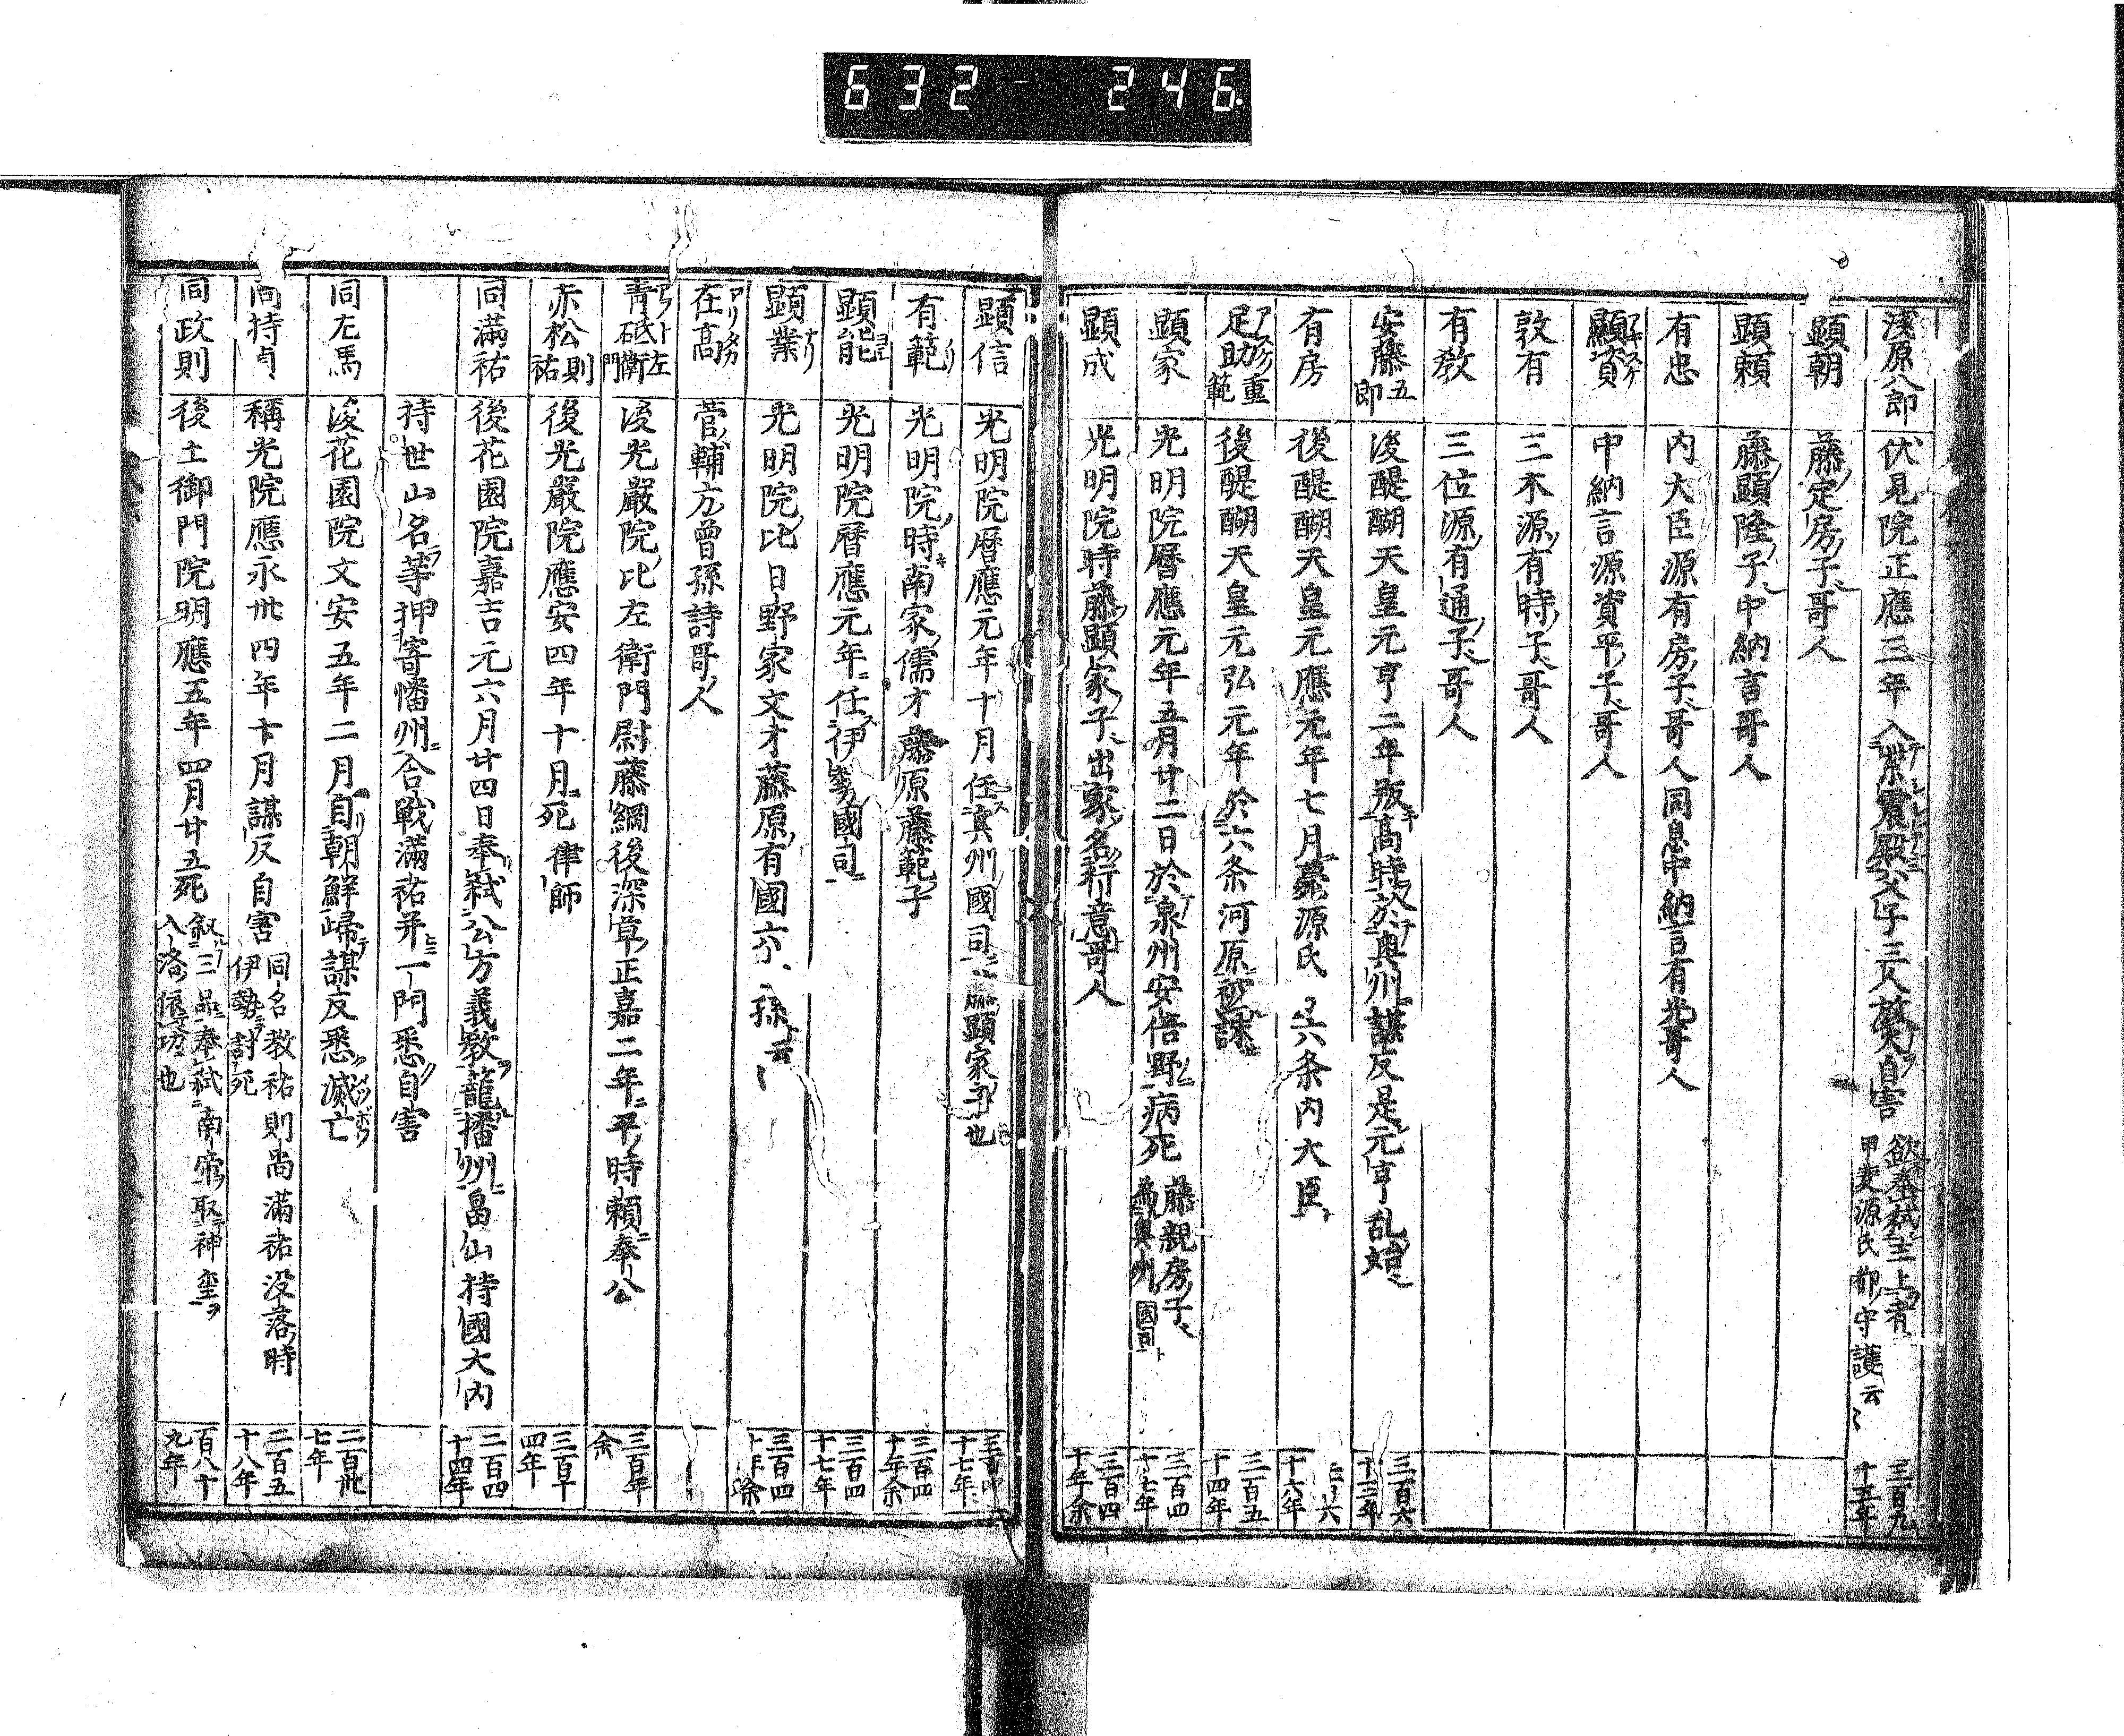 632 246
浅原八郎 伏見院正應三年入紫震殿父子三人放火自害 欲奉弑主上者 甲斐源氏都守護云〻 三百九十五年
顕朝 藤定房子哥人
顕頼 藤顕隆子中納言哥人
有忠 内大臣源有房子哥人同息中納言有光哥人
顯資 中納言源資平子哥人
敦有 三木源有時子哥人
有教 三位源有通子哥人
安藤五郎 後醍醐天皇元亨二年叛高時於奥州謀反是元亨乱始 三百六十三年
有房 後醍醐天皇元應元年七月薨源氏 六条内大臣 十六年
足助重範 後醍醐天皇元弘元年於六条河原被誅 三百五十四年
顕家 光明院暦應元年五月廿二日於泉州安倍野病死 藤親房子 為奥州國司 三百四十七年
顕成 光明院時藤顕家子出家名行意哥人 三百四十年余
顕信 光明院暦應元年十月任奥州國司 顕家子也 十七年
有範 光明院時南家儒才藤原藤範子 三百四十年余
顕能 光明院暦應元年任伊勢國司 三百四十七年
顕業 光明院比日野家文才藤原有國六 孫云〻 三百四十年余
在高 菅輔方曾孫詩哥人
青砥左衛門 後光嚴院比左衛門尉藤綱後深草正嘉二年平時頼奉公 三百年余
赤松則祐 後光嚴院應安四年十月死律師 三百十四年
同滿祐 後花園院嘉吉元六月廿四日奉弑公方義教籠播州畠山持國大内 二百四十四年
持世山名等押寄幡州合戦滿祐并一門悉自害
同左馬 後花園院文安五年二月自朝鮮歸謀反悉滅亡 二百卅七年
同持貞 稱光院應永卅四年十月謀反自害 同名教祐則尚滿祐没落時 伊勢討死 二百五十八年
同政則 後土御門院明應五年四月廿五死 叙三品奉弑南帝取神璽 入洛依功也 百八十九年